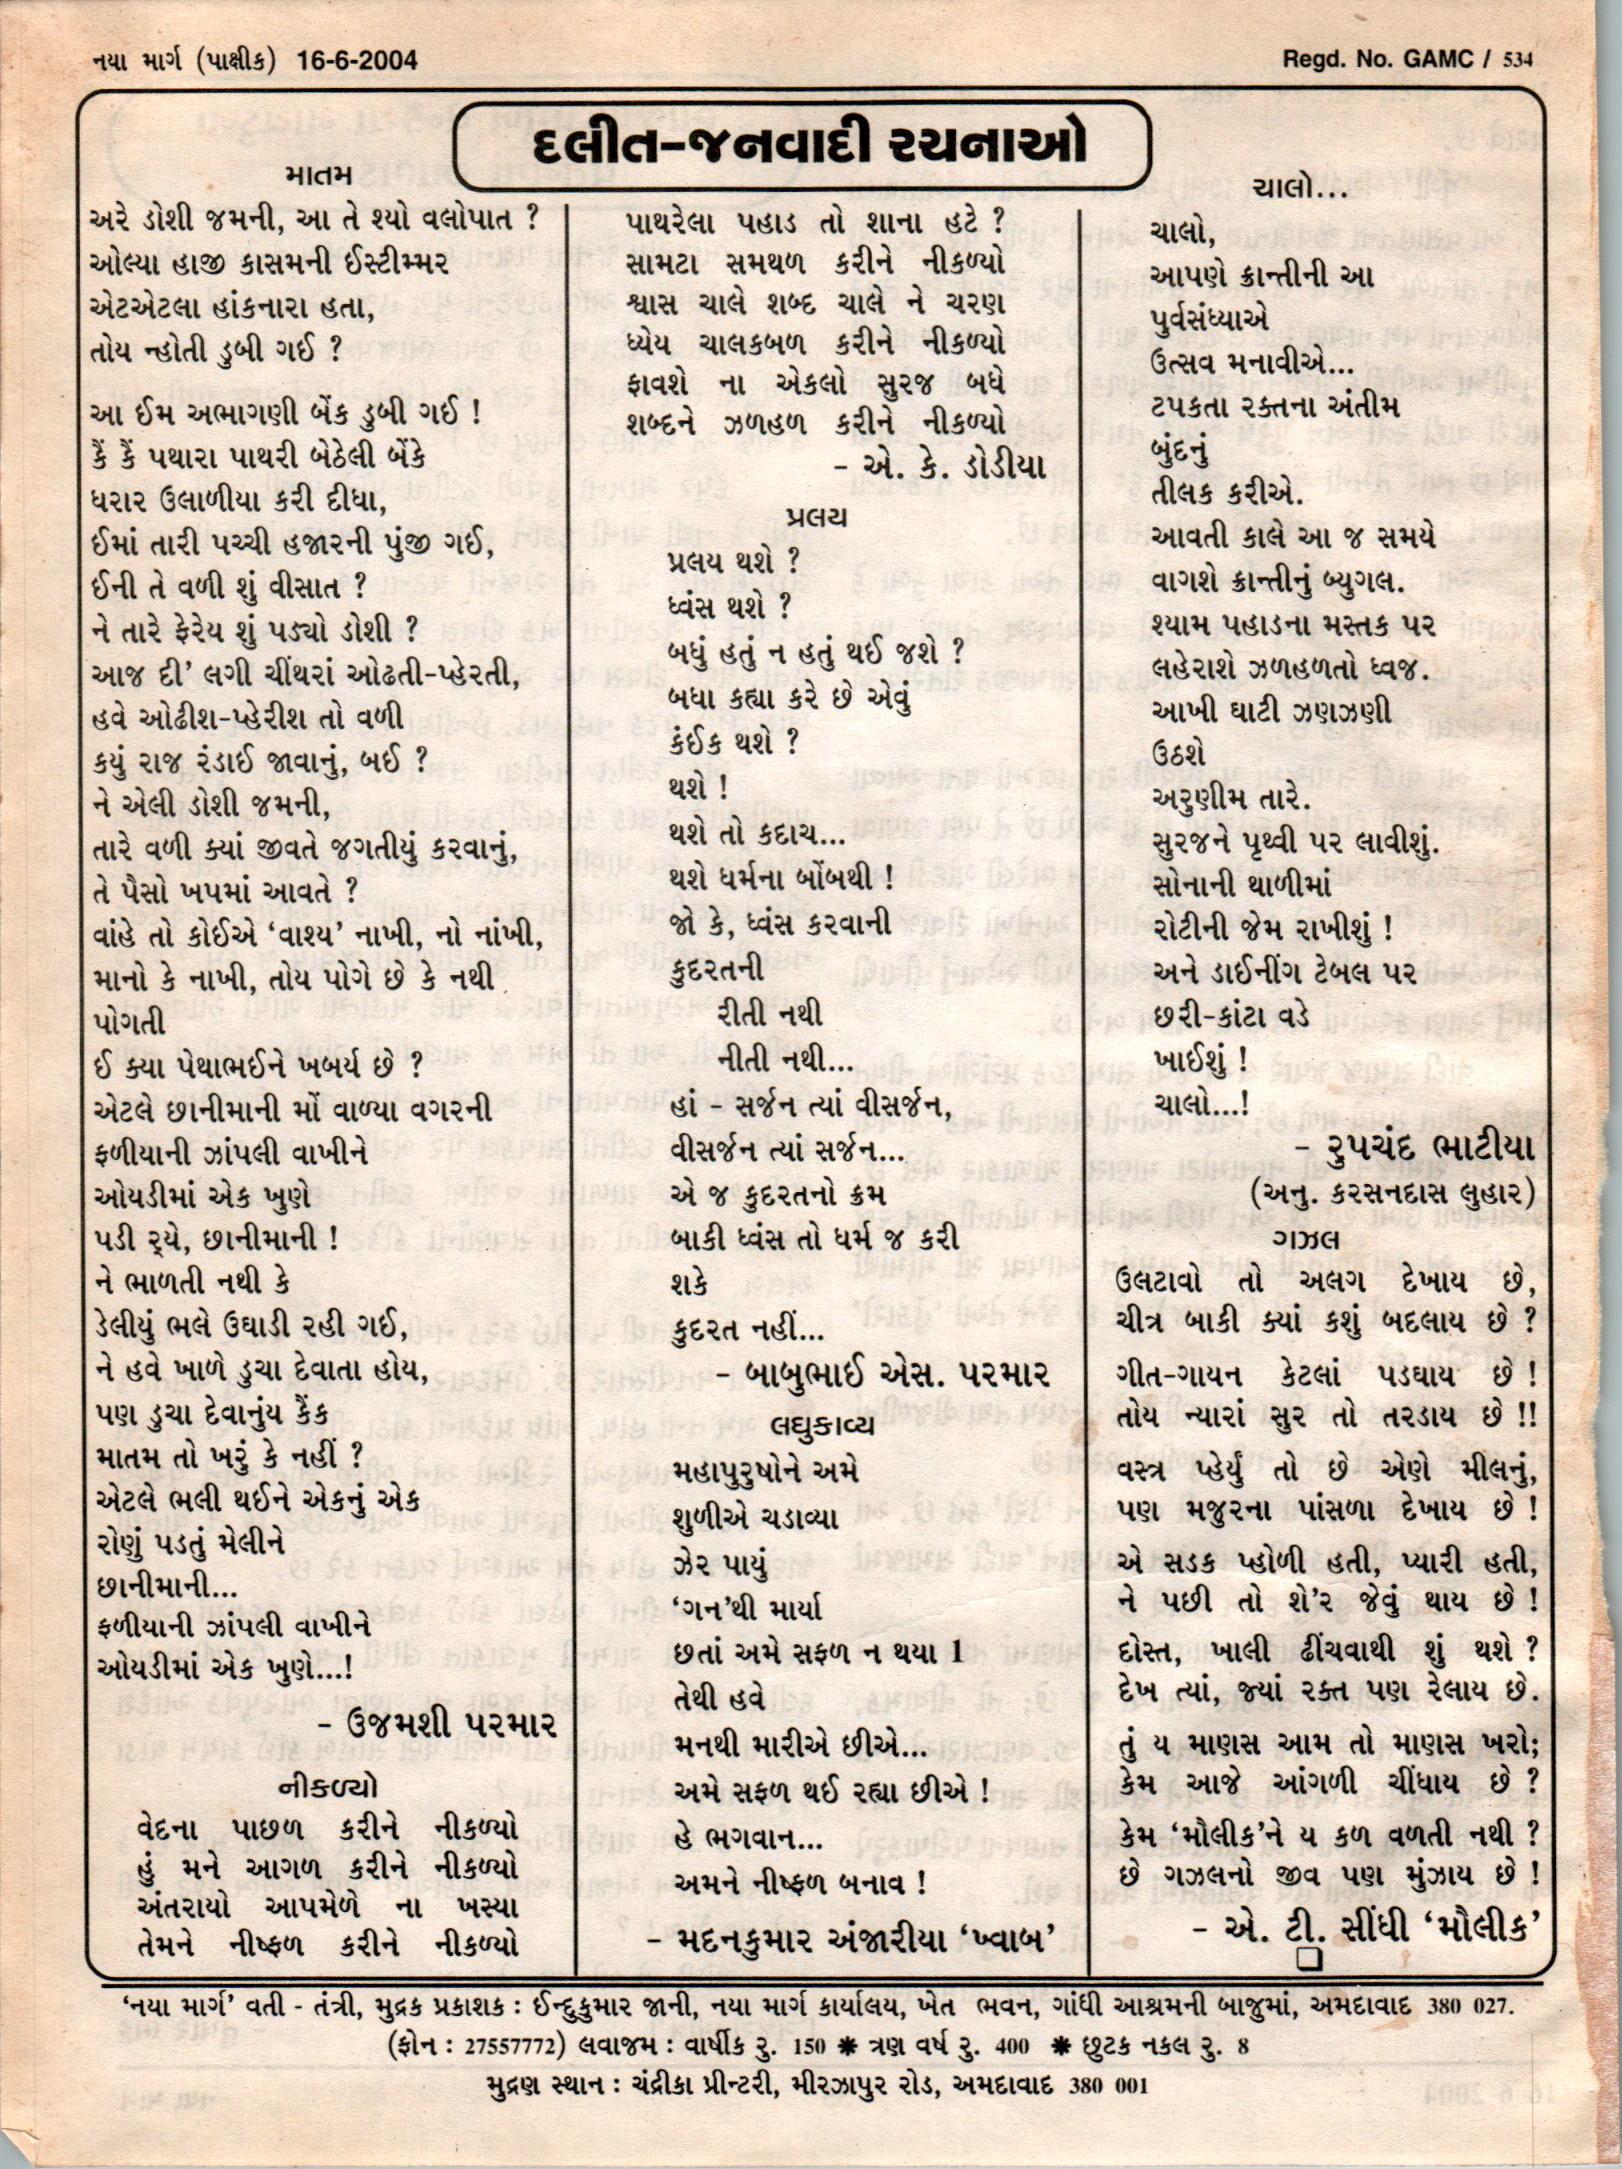 નયા માર્ગ (પાક્ષીક) 16-6-2004
Regd. No. GAMC / 534
દલીત-જનવાદી રચનાઓ
માતમ
અરે ડોશી જમની, આ તે શ્યો વલોપાત ?
ઓલ્યા હાજી કાસમની ઈસ્ટીમ્મર
એટએટલા હાંકનારા હતા,
તોય ન્હોતી ડુબી ગઈ ?
આ ઈમ અભાગણી બેંક ડુબી ગઈ !
કૈં કૈં પથારા પાથરી બેઠેલી બેંકે
ધરાર ઉલાળીયા કરી દીધા,
ઈમાં તારી પચ્ચી હજારની પુંજી ગઈ,
ઈની તે વળી શું વીસાત ?
ને તારે ફેરેય શું પડ્યો ડોશી ?
આજ દી' લગી ચીંથરાં ઓઢતી-પ્હેરતી,
હવે ઓઢીશ-પ્હેરીશ તો વળી
કયું રાજ રંડાઈ જાવાનું, બઈ ?
ને એલી ડોશી જમની,
તારે વળી ક્યાં જીવતે જગતીયું કરવાનું,
તે પૈસો ખપમાં આવતે ?
વાંહે તો કોઈએ ‘વાશ્ય’ નાખી, નો નાંખી,
માનો કે નાખી, તોય પોગે છે કે નથી
પોગતી
ઈ ક્યા પેથાભઈને ખબર્ય છે ?
એટલે છાનીમાની મોં વાળ્યા વગરની
ફળીયાની ઝાંપલી વાખીને
ઓયડીમાં એક ખુણે
પડી ર્‌યે, છાનીમાની !
ને ભાળતી નથી કે
ડેલીયું ભલે ઉઘાડી રહી ગઈ,
ને હવે ખાળે ડુચા દેવાતા હોય,
પણ ડુચા દેવાનુંય કૈંક
માતમ તો ખરું કે નહીં ?
એટલે ભલી થઈને એકનું એક
રોણું પડતું મેલીને
છાનીમાની...
ફળીયાની ઝાંપલી વાખીને
ઓયડીમાં એક ખુણે...!
- ઉજમશી પરમાર
નીકળ્યો
વેદના પાછળ કરીને નીકળ્યો
હું મને આગળ કરીને નીકળ્યો
અંતરાયો આપમેળે ના ખસ્યા
તેમને નીષ્ફળ કરીને નીકળ્યો
પાથરેલા પહાડ તો શાના હટે ?
સામટા સમથળ કરીને નીકળ્યો
શ્વાસ ચાલે શબ્દ ચાલે ને ચરણ
ધ્યેય ચાલકબળ કરીને નીકળ્યો
ફાવશે ના એકલો સુરજ બધે
શબ્દને ઝળહળ કરીને નીકળ્યો
- એ. કે. ડોડીયા
પ્રલય
પ્રલય થશે ?
ધ્વંસ થશે ?
બધું હતું ન હતું થઈ જશે ?
બધા કહ્યા કરે છે એવું
કંઈક થશે ?
થશે !
થશે તો કદાચ...
થશે ધર્મના બોંબથી !
જો કે, ધ્વંસ કરવાની
કુદરતની
રીતી નથી
નીતી નથી...
હાં - સર્જન ત્યાં વીસર્જન,
વીસર્જન ત્યાં સર્જન...
એ જ કુદરતનો ક્રમ
બાકી ધ્વંસ તો ધર્મ જ કરી
શકે
કુદરત નહીં...
- બાબુભાઈ એસ. પરમાર
લઘુકાવ્ય
મહાપુરુષોને અમે
શુળીએ ચડાવ્યા
ઝેર પાયું
‘ગન’થી માર્યા
છતાં અમે સફળ ન થયા 1
તેથી હવે
મનથી મારીએ છીએ...
અમે સફળ થઈ રહ્યા છીએ !
હે ભગવાન...
અમને નીષ્ફળ બનાવ !
- મદનકુમાર અંજારીયા ‘ખ્વાબ’
ચાલો...
ચાલો,
આપણે ક્રાન્તીની આ
પુર્વસંધ્યાએ
ઉત્સવ મનાવીએ...
ટપકતા રક્તના અંતીમ
બુંદનું
તીલક કરીએ.
આવતી કાલે આ જ સમયે
વાગશે ક્રાન્તીનું બ્યુગલ.
શ્યામ પહાડના મસ્તક પર
લહેરાશે ઝળહળતો ધ્વજ.
આખી ઘાટી ઝણઝણી
ઉઠશે
અરુણીમ તારે.
સુરજને પૃથ્વી પર લાવીશું.
સોનાની થાળીમાં
રોટીની જેમ રાખીશું !
અને ડાઈનીંગ ટેબલ પર
છરી-કાંટા વડે
ખાઈશું !
ચાલો...!
- રુપચંદ ભાટીયા
(અનુ. કરસનદાસ લુહાર)
ગઝલ
ઉલટાવો તો અલગ દેખાય છે,
ચીત્ર બાકી ક્યાં કશું બદલાય છે ?
ગીત-ગાયન કેટલાં પડઘાય છે !
તોય ન્યારાં સુર તો તરડાય છે !!
વસ્ત્ર પ્હેર્યું તો છે એણે મીલનું,
પણ મજુરના પાંસળા દેખાય છે !
એ સડક પ્હોળી હતી, પ્યારી હતી,
ને પછી તો શે'ર જેવું થાય છે !
દોસ્ત, ખાલી ઢીંચવાથી શું થશે ?
દેખ ત્યાં, જ્યાં રક્ત પણ રેલાય છે.
તું ય માણસ આમ તો માણસ ખરો;
કેમ આજે આંગળી ચીંધાય છે ?
કેમ ‘મૌલીક’ને ય કળ વળતી નથી ?
છે ગઝલનો જીવ પણ મુંઝાય છે !
- એ. ટી. સીંધી ‘મૌલીક’
‘નયા માર્ગ’ વતી - તંત્રી, મુદ્રક પ્રકાશક : ઈન્દુકુમાર જાની, નયા માર્ગ કાર્યાલય, ખેત ભવન, ગાંધી આશ્રમની બાજુમાં, અમદાવાદ 380 027.
(ફોન : 27557772) લવાજમ : વાર્ષીક રુ. 150 ✱ ત્રણ વર્ષ રુ. 400 ✱ છુટક નકલ રુ. 8
મુદ્રણ સ્થાન : ચંદ્રીકા પ્રીન્ટરી, મીરઝાપુર રોડ, અમદાવાદ 380 001